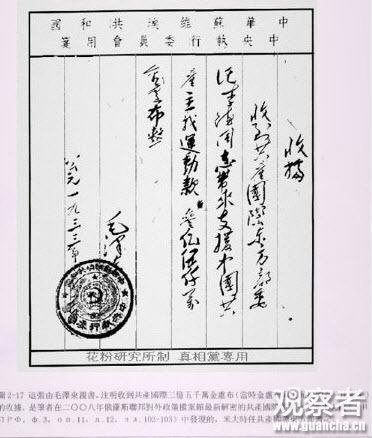 中華蘇維埃共和國
中央執行委員會用箋
收據
收到共產國際东方部委
托李德同志带来支援中國共
產主義運動款叁亿伍仟万
金盧布整
毛澤
公元一九三三年
花粉研究所制 真相黨專用
圖2-17 這張由毛澤東親書，注明收到共產國際三億五千萬金盧布(當時金盧
的收據，是筆者在二〇〇八年俄羅斯聯邦對外政策檔案館最新解密的共產國
ф.3, оп.11, д.12, 102-103) 中發現的，米夫時任共產國
观察者
www.guancha.cn